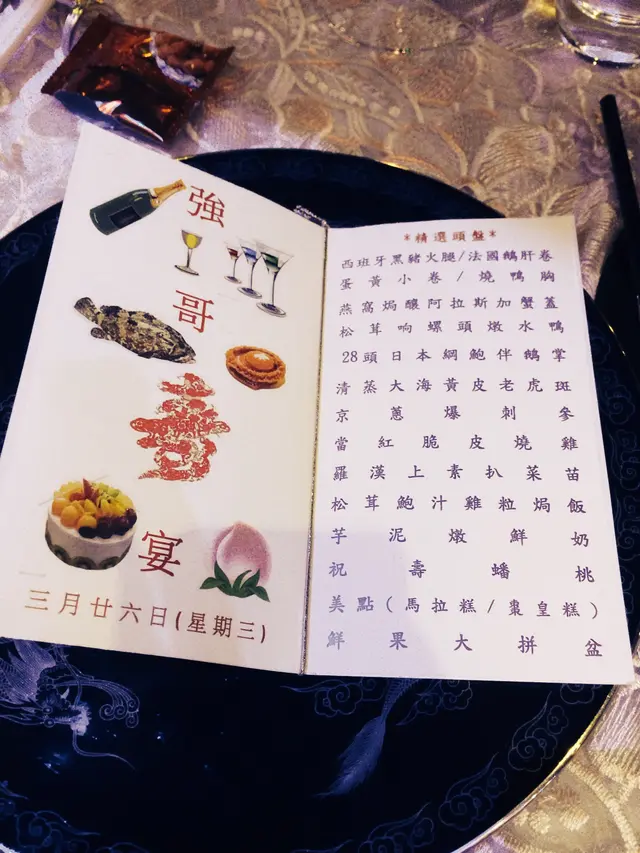 強
哥
壽
宴
三月廿六日(星期三)
*精選頭盤*
西班牙黑豬火腿/法國鵝肝卷
蛋黃小卷/燒鴨胸
燕窩焗釀阿拉斯加蟹蓋
松茸响螺頭燉水鴨
28頭日本網鮑伴鵝掌
清蒸大海黃皮老虎斑
京蔥爆刺參
當紅脆皮燒雞
羅漢上素扒菜苗
松茸鮑汁雞粒焗飯
芋泥燉鮮奶
祝壽蟠桃
美點(馬拉糕/棗皇糕)
鮮果大拼盆